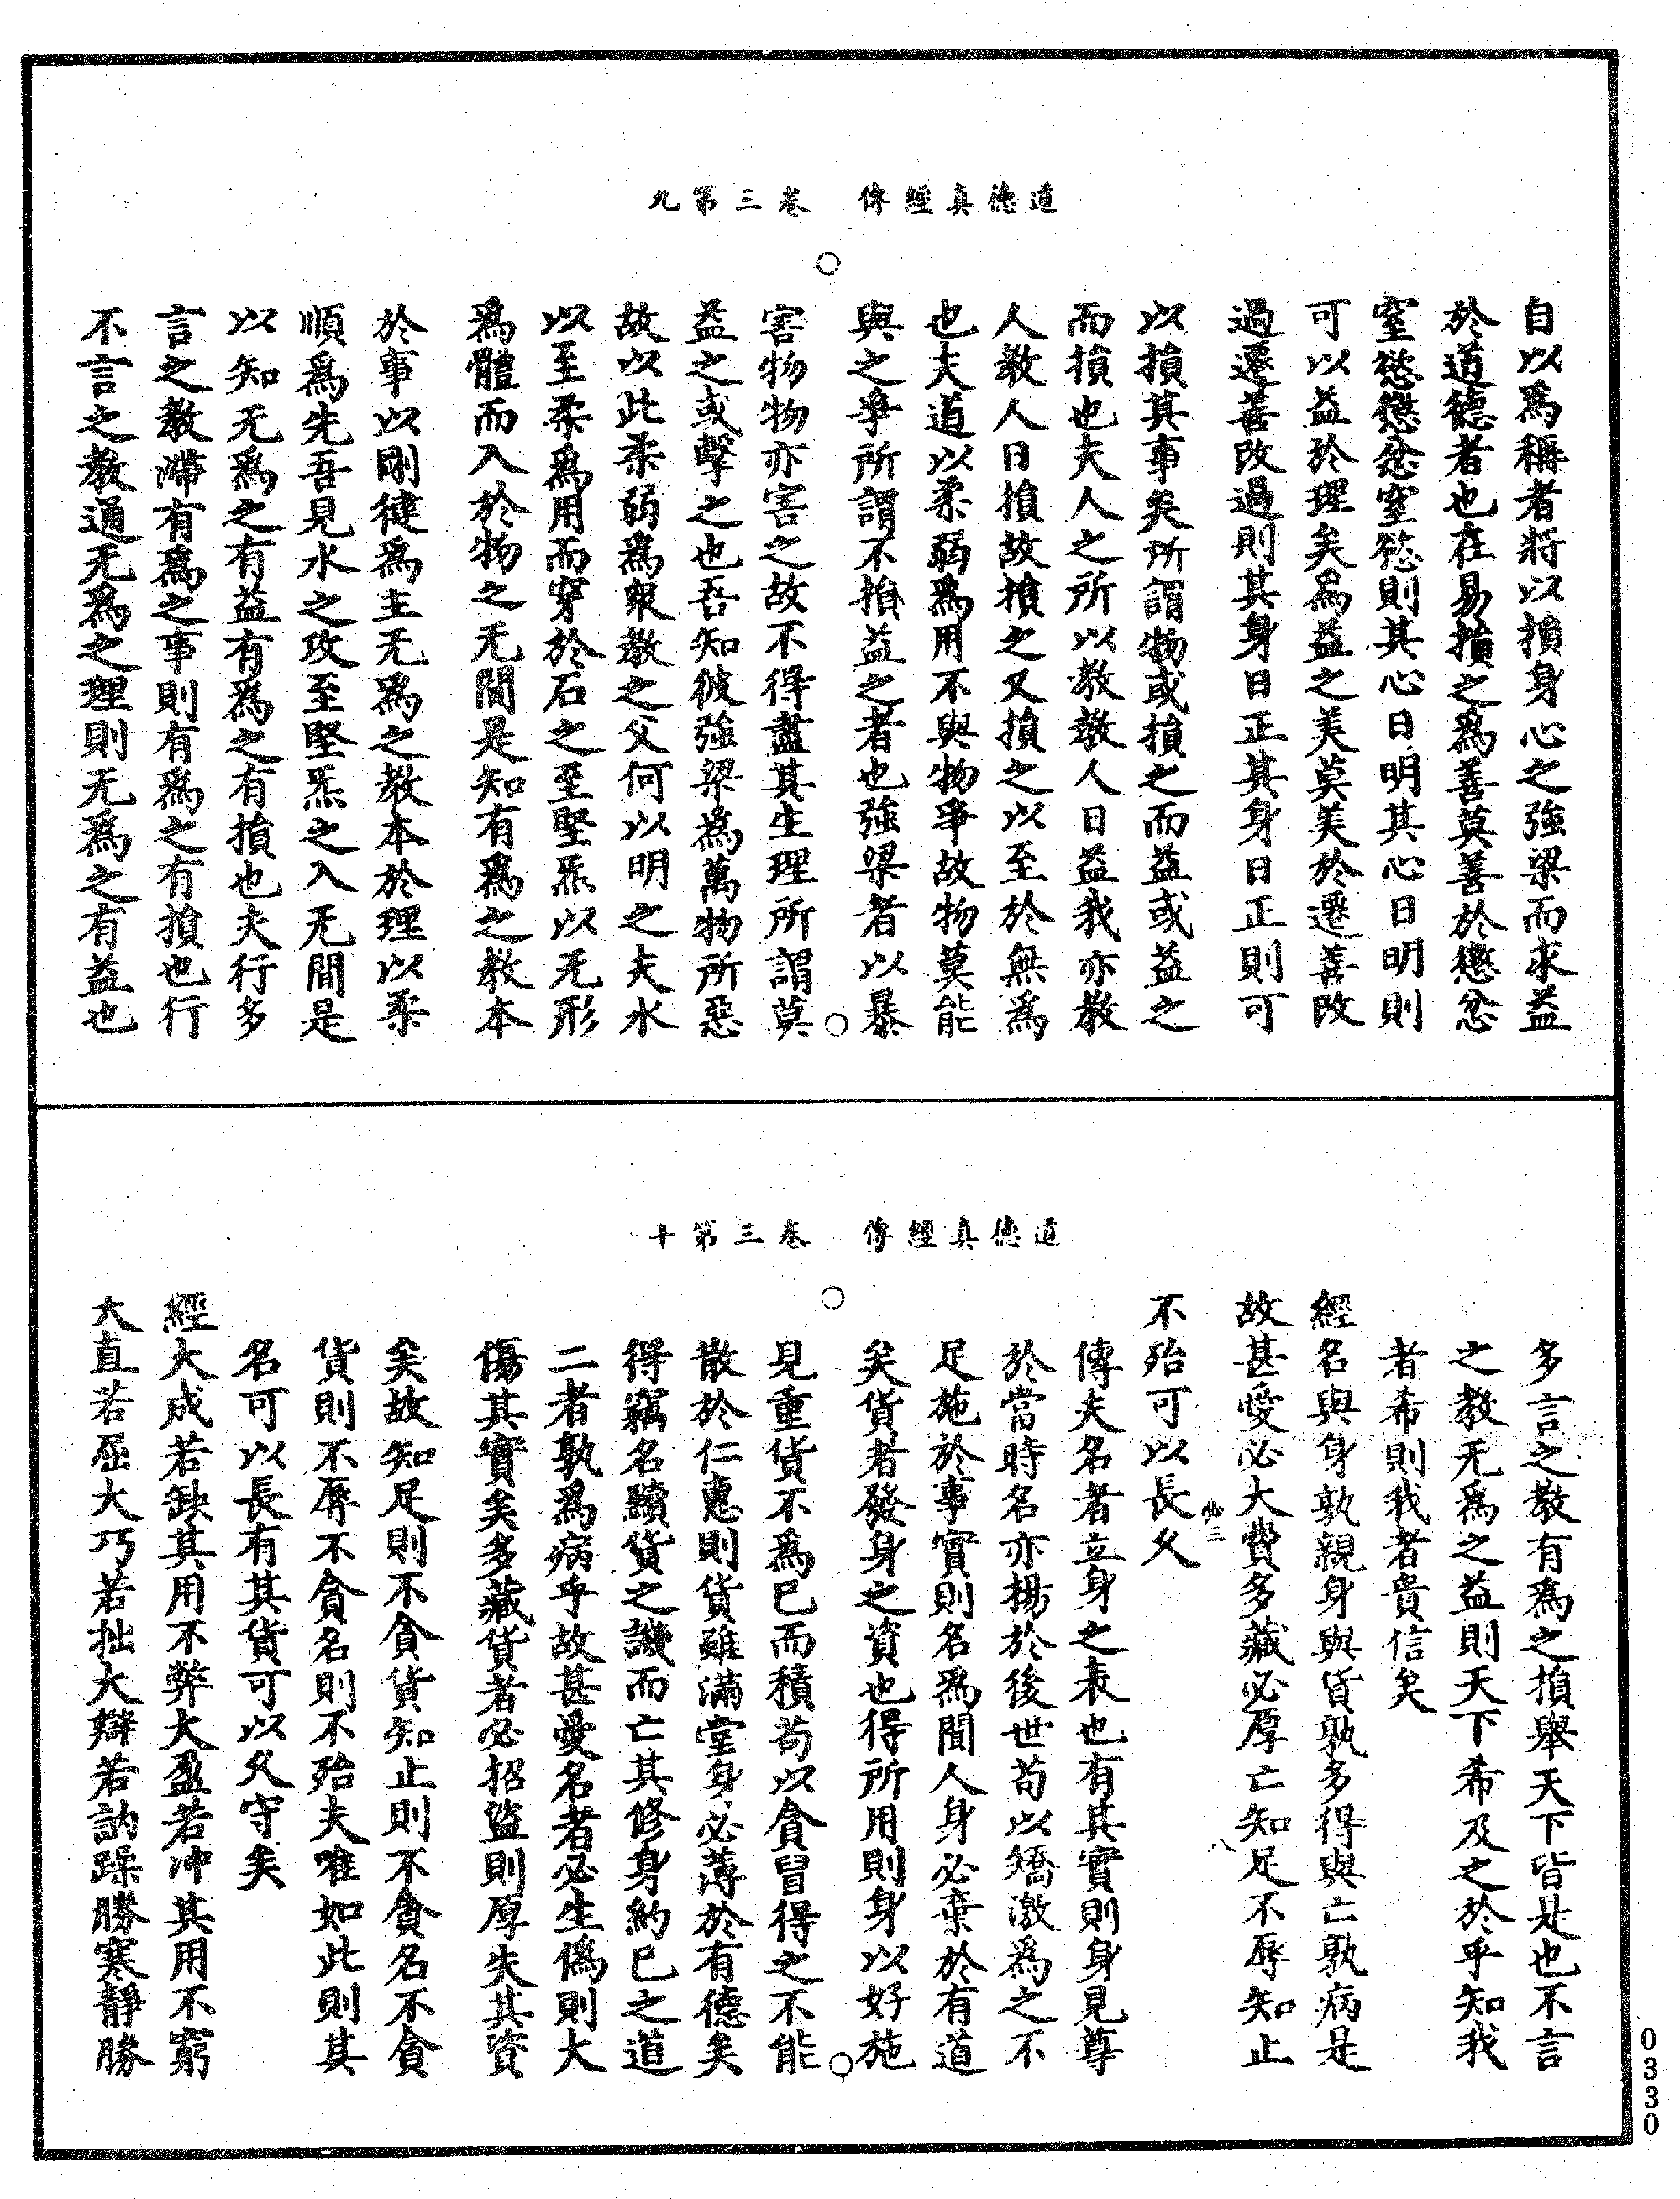 道德真經傳　卷三第九
自以爲稱者將以損身心之強梁而求益
於道德者也在易損之爲善莫善於懲忿
窒慾懲忿窒慾則其心日明其心日明則
可以益於理矣爲益之美莫美於遷善改
過遷善改過則其身日正其身日正則可
以損其事矣所謂物或損之而益或益之
而損也夫人之所以教教人日益我亦教
人教人日損故損之又損之以至於無爲
也夫道以柔弱爲用不與物爭故物莫能
與之爭所謂不損益之者也強梁者以暴
害物物亦害之故不得盡其生理所謂莫
益之或擊之也吾知彼強梁爲萬物所惡
故以此柔弱爲衆教之父何以明之夫水
以至柔爲用而穿於石之至堅炁以无形
爲體而入於物之无間是知有爲之教本
於事以剛健爲主无爲之教本於理以柔
順爲先吾見水之攻至堅炁之入无間是
以知无爲之有益有爲之有損也夫行多
言之教滯有爲之事則有爲之有損也行
不言之教通无爲之理則无爲之有益也
道德真經傳　卷三第十
多言之教有爲之損舉天下皆是也不言
之教无爲之益則天下希及之於乎知我
者希則我者貴信矣
經名與身孰親身與貨孰多得與亡孰病是
故甚愛必大費多藏必厚亡知足不辱知止
不殆可以長久
傳夫名者立身之表也有其實則身見尊
於當時名亦揚於後世苟以矯激爲之不
足施於事實則名爲聞人身必棄於有道
矣貨者發身之資也得所用則身以好施
見重貨不爲已而積苟以貪冒得之不能
散於仁惠則貨雖滿堂身必薄於有德矣
得竊名黷貨之譏而亡其修身約已之道
二者孰爲病乎故甚愛名者必生僞則大
傷其實矣多藏貨者必招盜則厚失其資
矣故知足則不貪貨知止則不貪名不貪
貨則不辱不貪名則不殆夫唯如此則其
名可以長有其貨可以久守矣
經大成若缺其用不弊大盈若冲其用不窮
大直若屈大巧若拙大辯若訥躁勝寒靜勝
0330